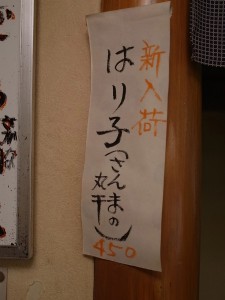 新入荷
はり子(さんまの
丸干)
450